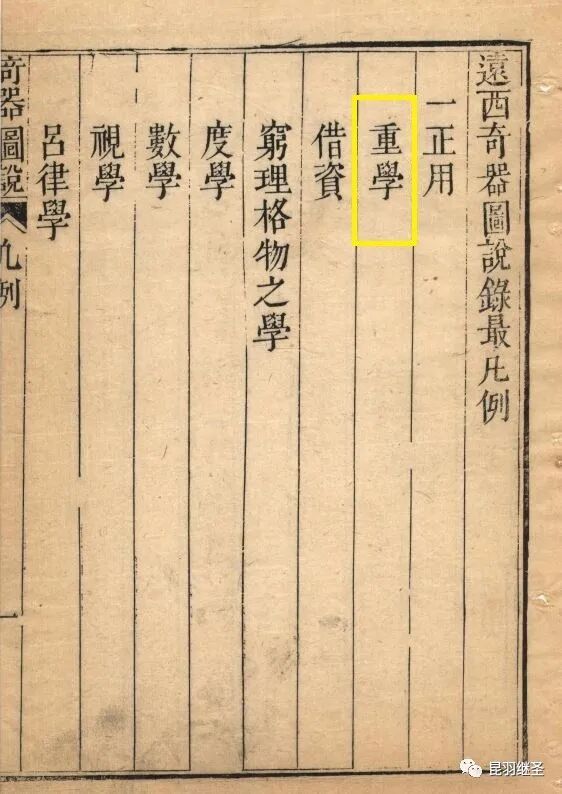 遠西奇器圖說錄最凡例
一正用
重學
借資
窮理格物之學
度學
數學
視學
呂律學
奇器圖說
凡例
一
昆羽继圣